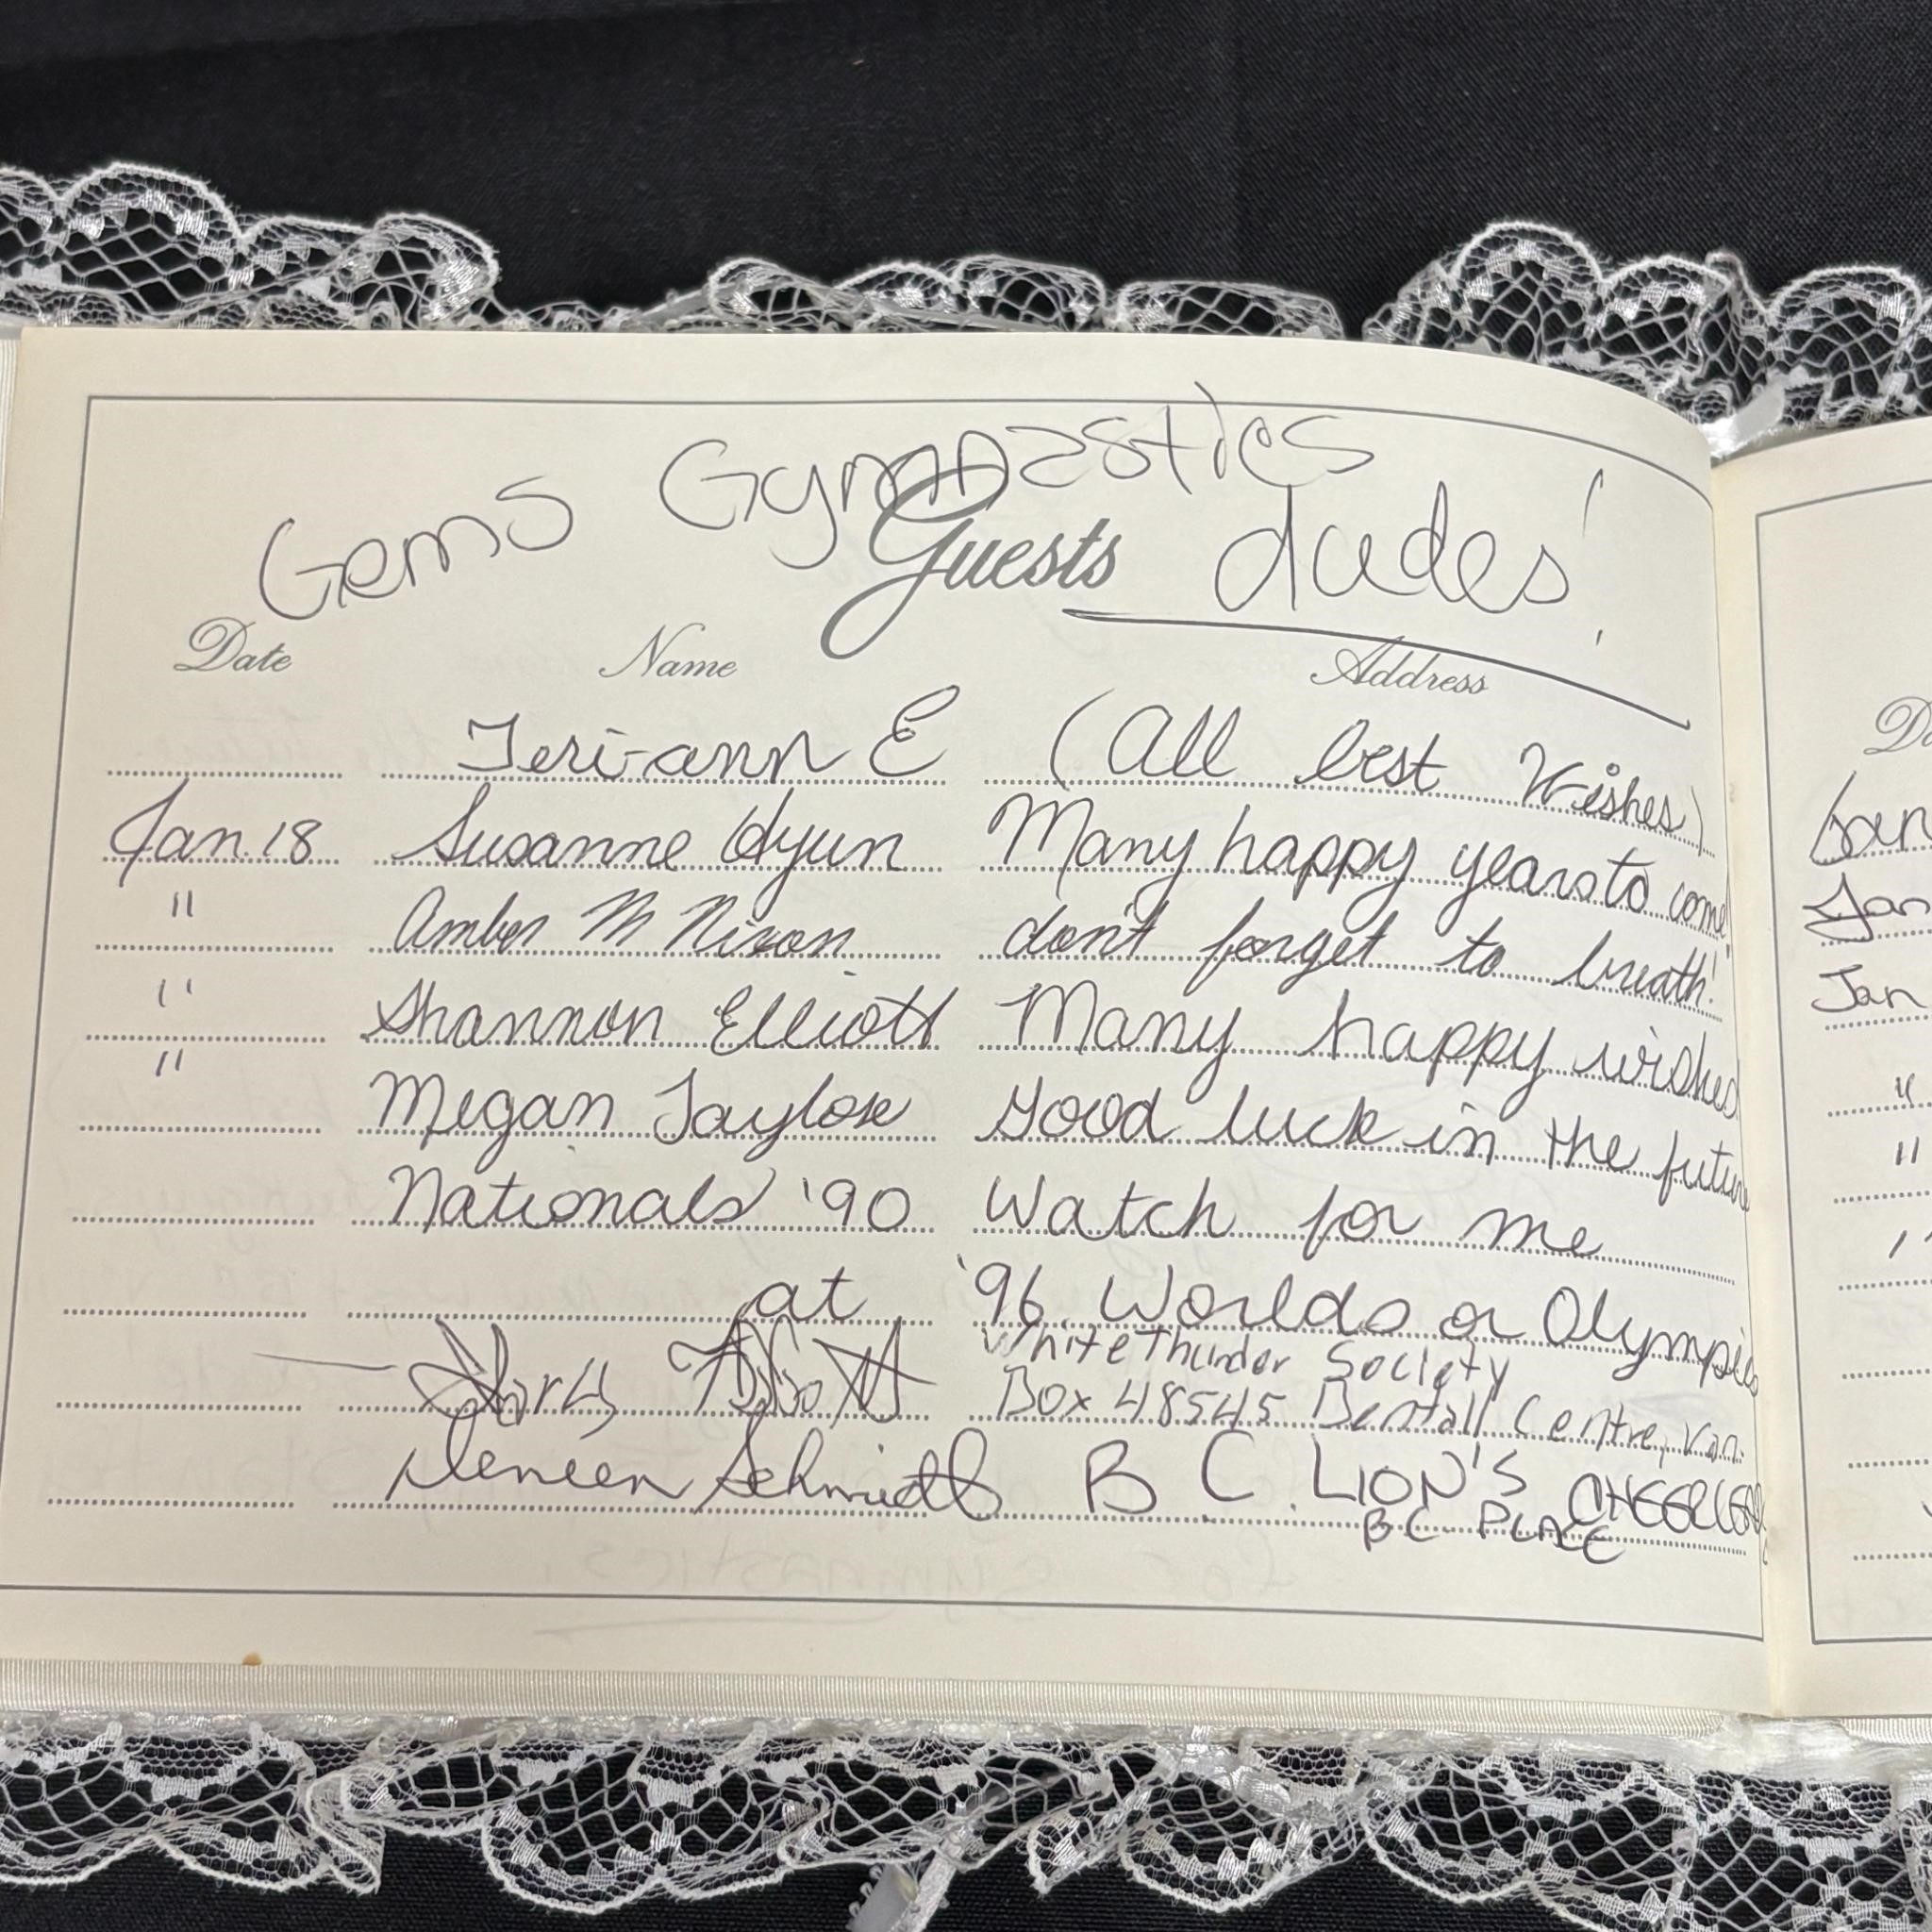 Gems Gymnastics dudes!
Guests
Date Name Address
Teri-ann E (All best Wishes)
Jan. 18 Susanne Hyun Many happy years to come!
" Amber M Nixon don't forget to breath!
" Shannon Elliott Many happy wishes
" Megan Taylor Good luck in the future
Nationals '90 Watch for me
at '96 Worlds or Olympics
White Thunder Society
Box 48545 Bentall Centre, Van.
Deneen Schmidt B C LION'S
BC PLACE
Da
Jan
Jan
Jan
"
"